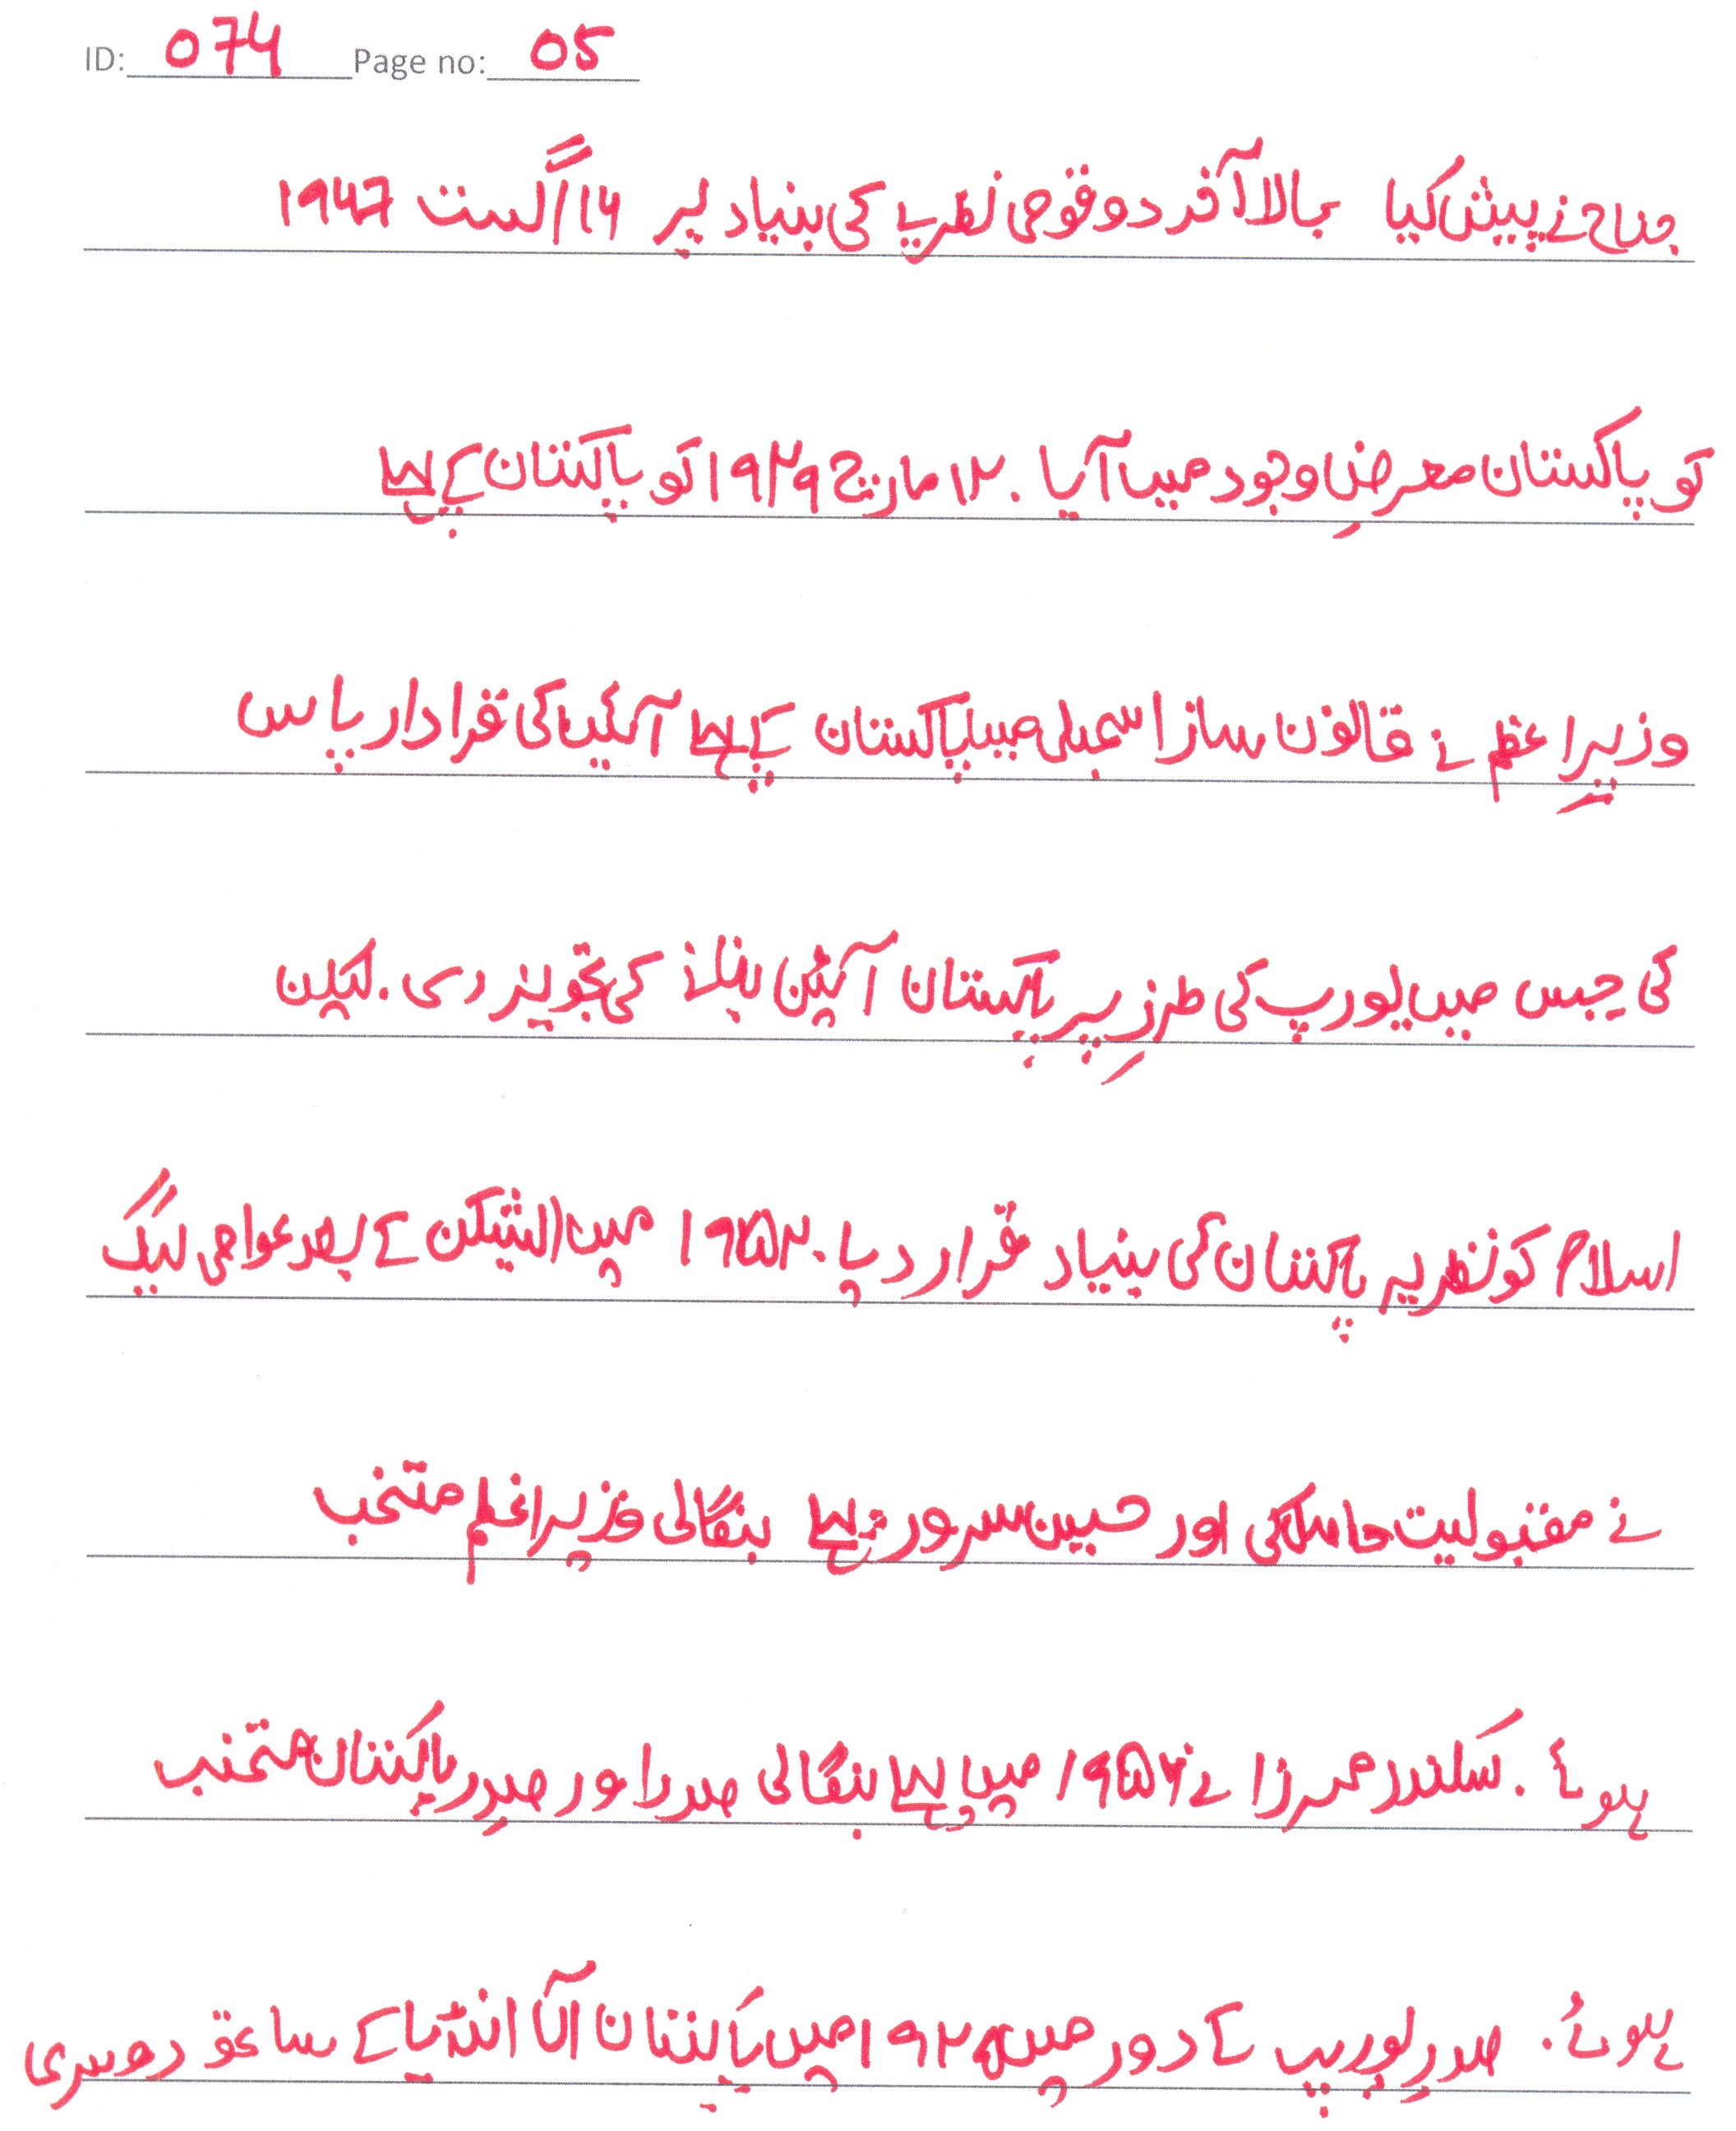 ID: 074 Page no: 05
جناح نے پیش کیا بالاآخر دو قومی نظریے کی بنیاد پر ۱۴ اگست ۱۹۴۷
کو پاکستان معرضِ وجود میں آیا. ۱۲ مارچ ۱۹۴۹ کو پاکستان کے پہلے
وزیرِاعظم نے قانون ساز اسمبلی میں پاکستان کے پہلے آئین کی قرادار پاس
کی جس میں یورپ کی طرزِ پر پاکستان آئین بنانے کی تجویز دی. لیکن
اسلام کو نظریہ پاکستان کی بنیاد قرار دیا. ۱۹۵۴ میں الیکشن کے بعد عوامی لیگ
نے مقبولیت حاصل کی اور حسین سرور پہلے بنگالی وزیراعظم منتخب
ہوئے. سکندر مرزا نے ۱۹۵۶ میں پہلے بنگالی صدر اور صدرِ پاکستان منتخب
ہوئے. صدر کے دور میں میں پاکستان انڈیا کے ساتھ دوسری